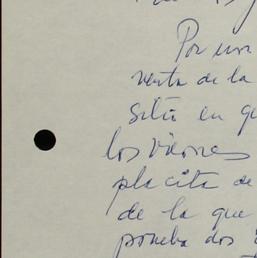 Por un
venta de la
sitio en q
los viernes
placita de
de la que
prueba dos